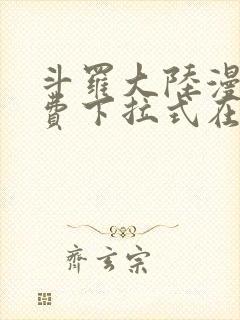 斗羅大陸漫
費下拉式在
齊玄宗